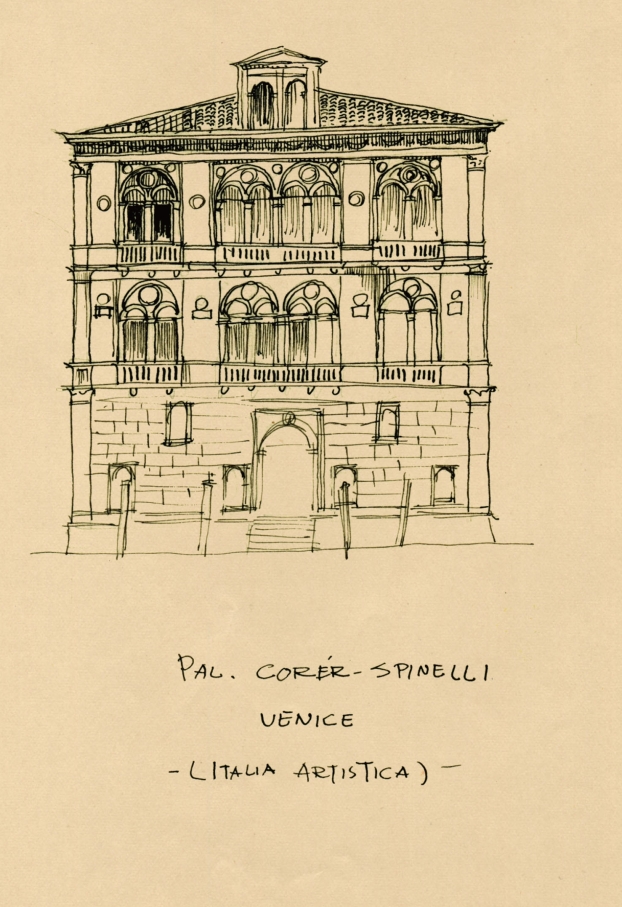 PAL. CORÉR-SPINELLI
VENICE
-(ITALIA ARTISTICA)-